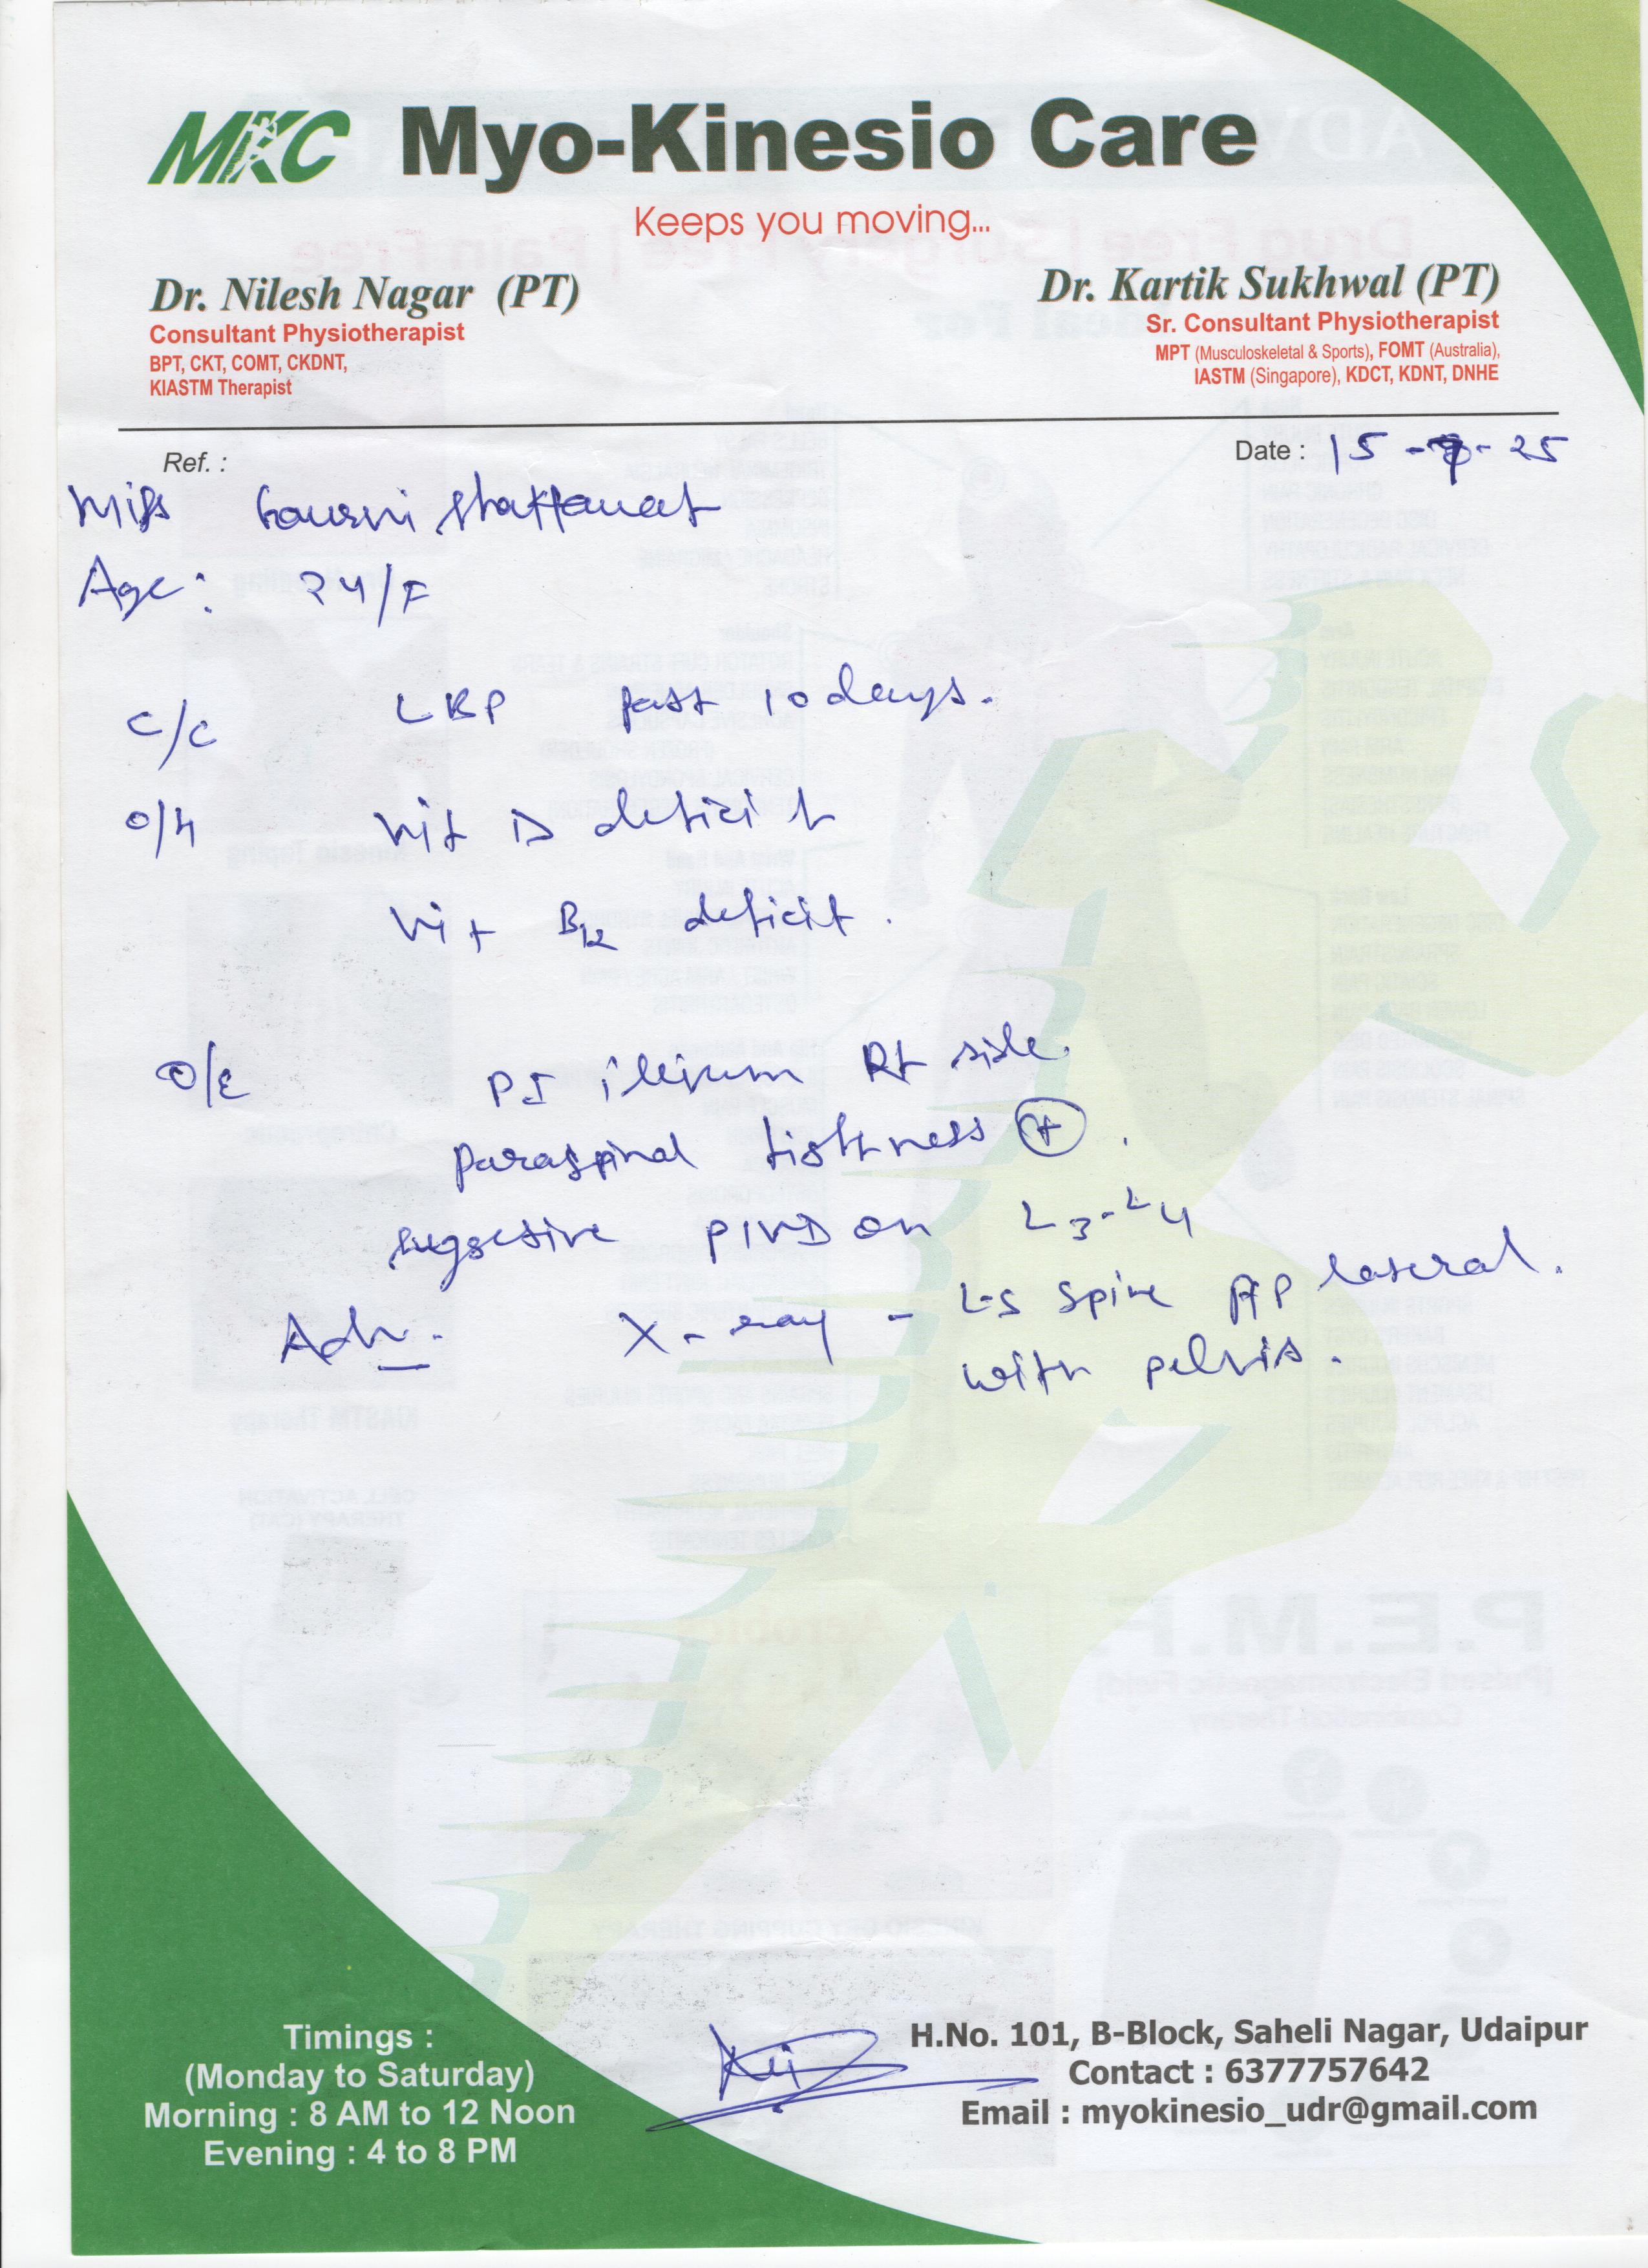 MKC Myo-Kinesio Care
Keeps you moving...
Dr. Nilesh Nagar (PT)
Consultant Physiotherapist
BPT, CKT, COMT, CKDNT,
KIASTM Therapist
Dr. Kartik Sukhwal (PT)
Sr. Consultant Physiotherapist
MPT (Musculoskeletal & Sports), FOMT (Australia),
IASTM (Singapore), KDCT, KDNT, DNHE
Ref. :
Date : 15 - - 25
Miss
Age: 24/F
C/C LBP past 10 days.
O/H Vit D deficit
Vit B12 deficit.
O/E PI ilium Rt side.
paraspinal tightness +.
suggestive PIVD on L3-L4
Adv. X-ray - L-S spine AP lateral.
with pelvis.
Timings :
(Monday to Saturday)
Morning : 8 AM to 12 Noon
Evening : 4 to 8 PM
H.No. 101, B-Block, Saheli Nagar, Udaipur
Contact : 6377757642
Email : myokinesio_udr@gmail.com